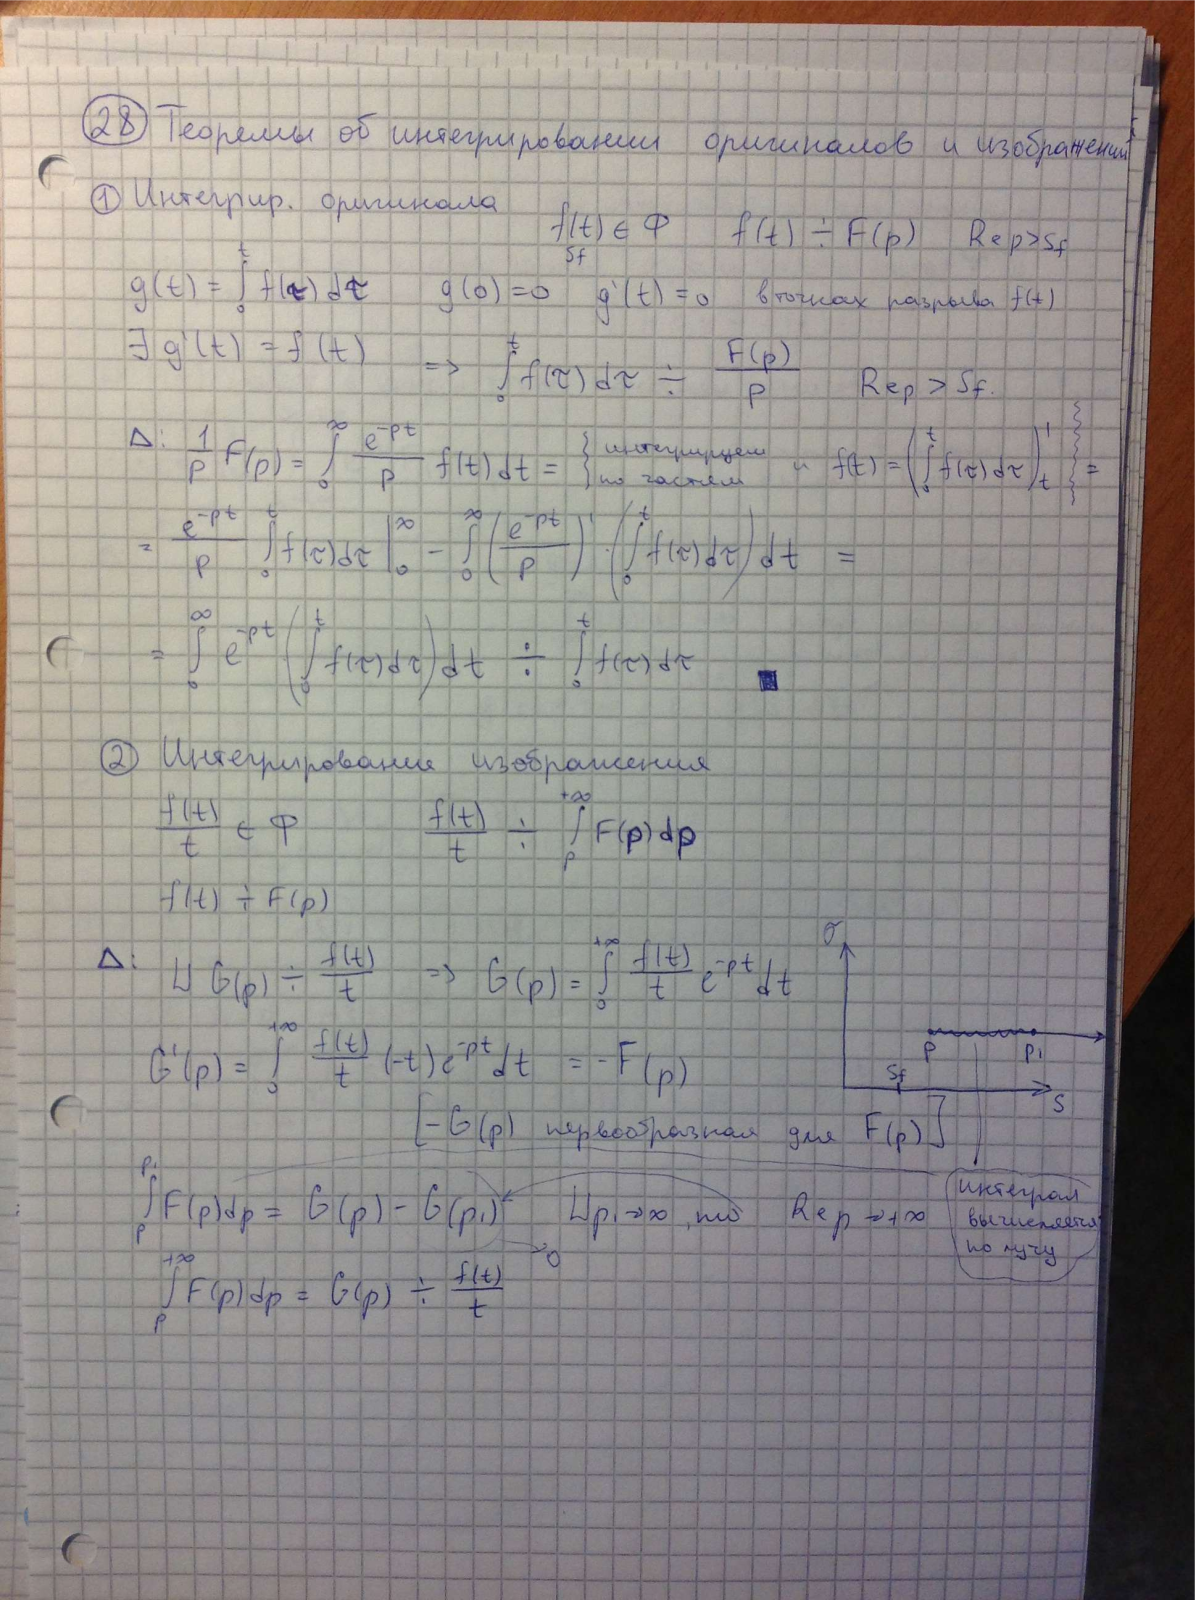 28 Теоремы об интегрировании оригиналов и изображений
① Интегрир. оригинала
f(t) ∈ Φ   f(t) ÷ F(p)   Re p > S_f
S_f
g(t) = ∫_0^t f(τ) dτ   g(0) = 0   g'(t) = 0 в точках разрыва f(t)
∃ g'(t) = f(t)   =>   ∫_0^t f(τ) dτ ÷ F(p)/p   Re p > S_f.
Δ: 1/p F(p) = ∫_0^∞ e^{-pt}/p f(t) dt = { интегрируем по частям и f(t) = (∫_0^t f(τ) dτ)'_t } =
= e^{-pt}/p ∫_0^t f(τ) dτ |_0^∞ - ∫_0^∞ (e^{-pt}/p)' · (∫_0^t f(τ) dτ) dt =
= ∫_0^∞ e^{-pt} (∫_0^t f(τ) dτ) dt ÷ ∫_0^t f(τ) dτ ■
② Интегрирование изображения
f(t)/t ∈ Φ   f(t)/t ÷ ∫_p^{+∞} F(p) dp
f(t) ÷ F(p)
Δ: ⊔ G(p) ÷ f(t)/t => G(p) = ∫_0^{+∞} f(t)/t e^{-pt} dt
G'(p) = ∫_0^{+∞} f(t)/t (-t) e^{-pt} dt = -F(p)
[-G(p) первообразная для F(p)]
σ
p   p_1
S_f
S
∫_p^{p_1} F(p) dp = G(p) - G(p_1)   ⊔ p_1 → ∞, то Re p → +∞
→ 0
интеграл
вычисляется
по лучу
∫_p^{+∞} F(p) dp = G(p) ÷ f(t)/t